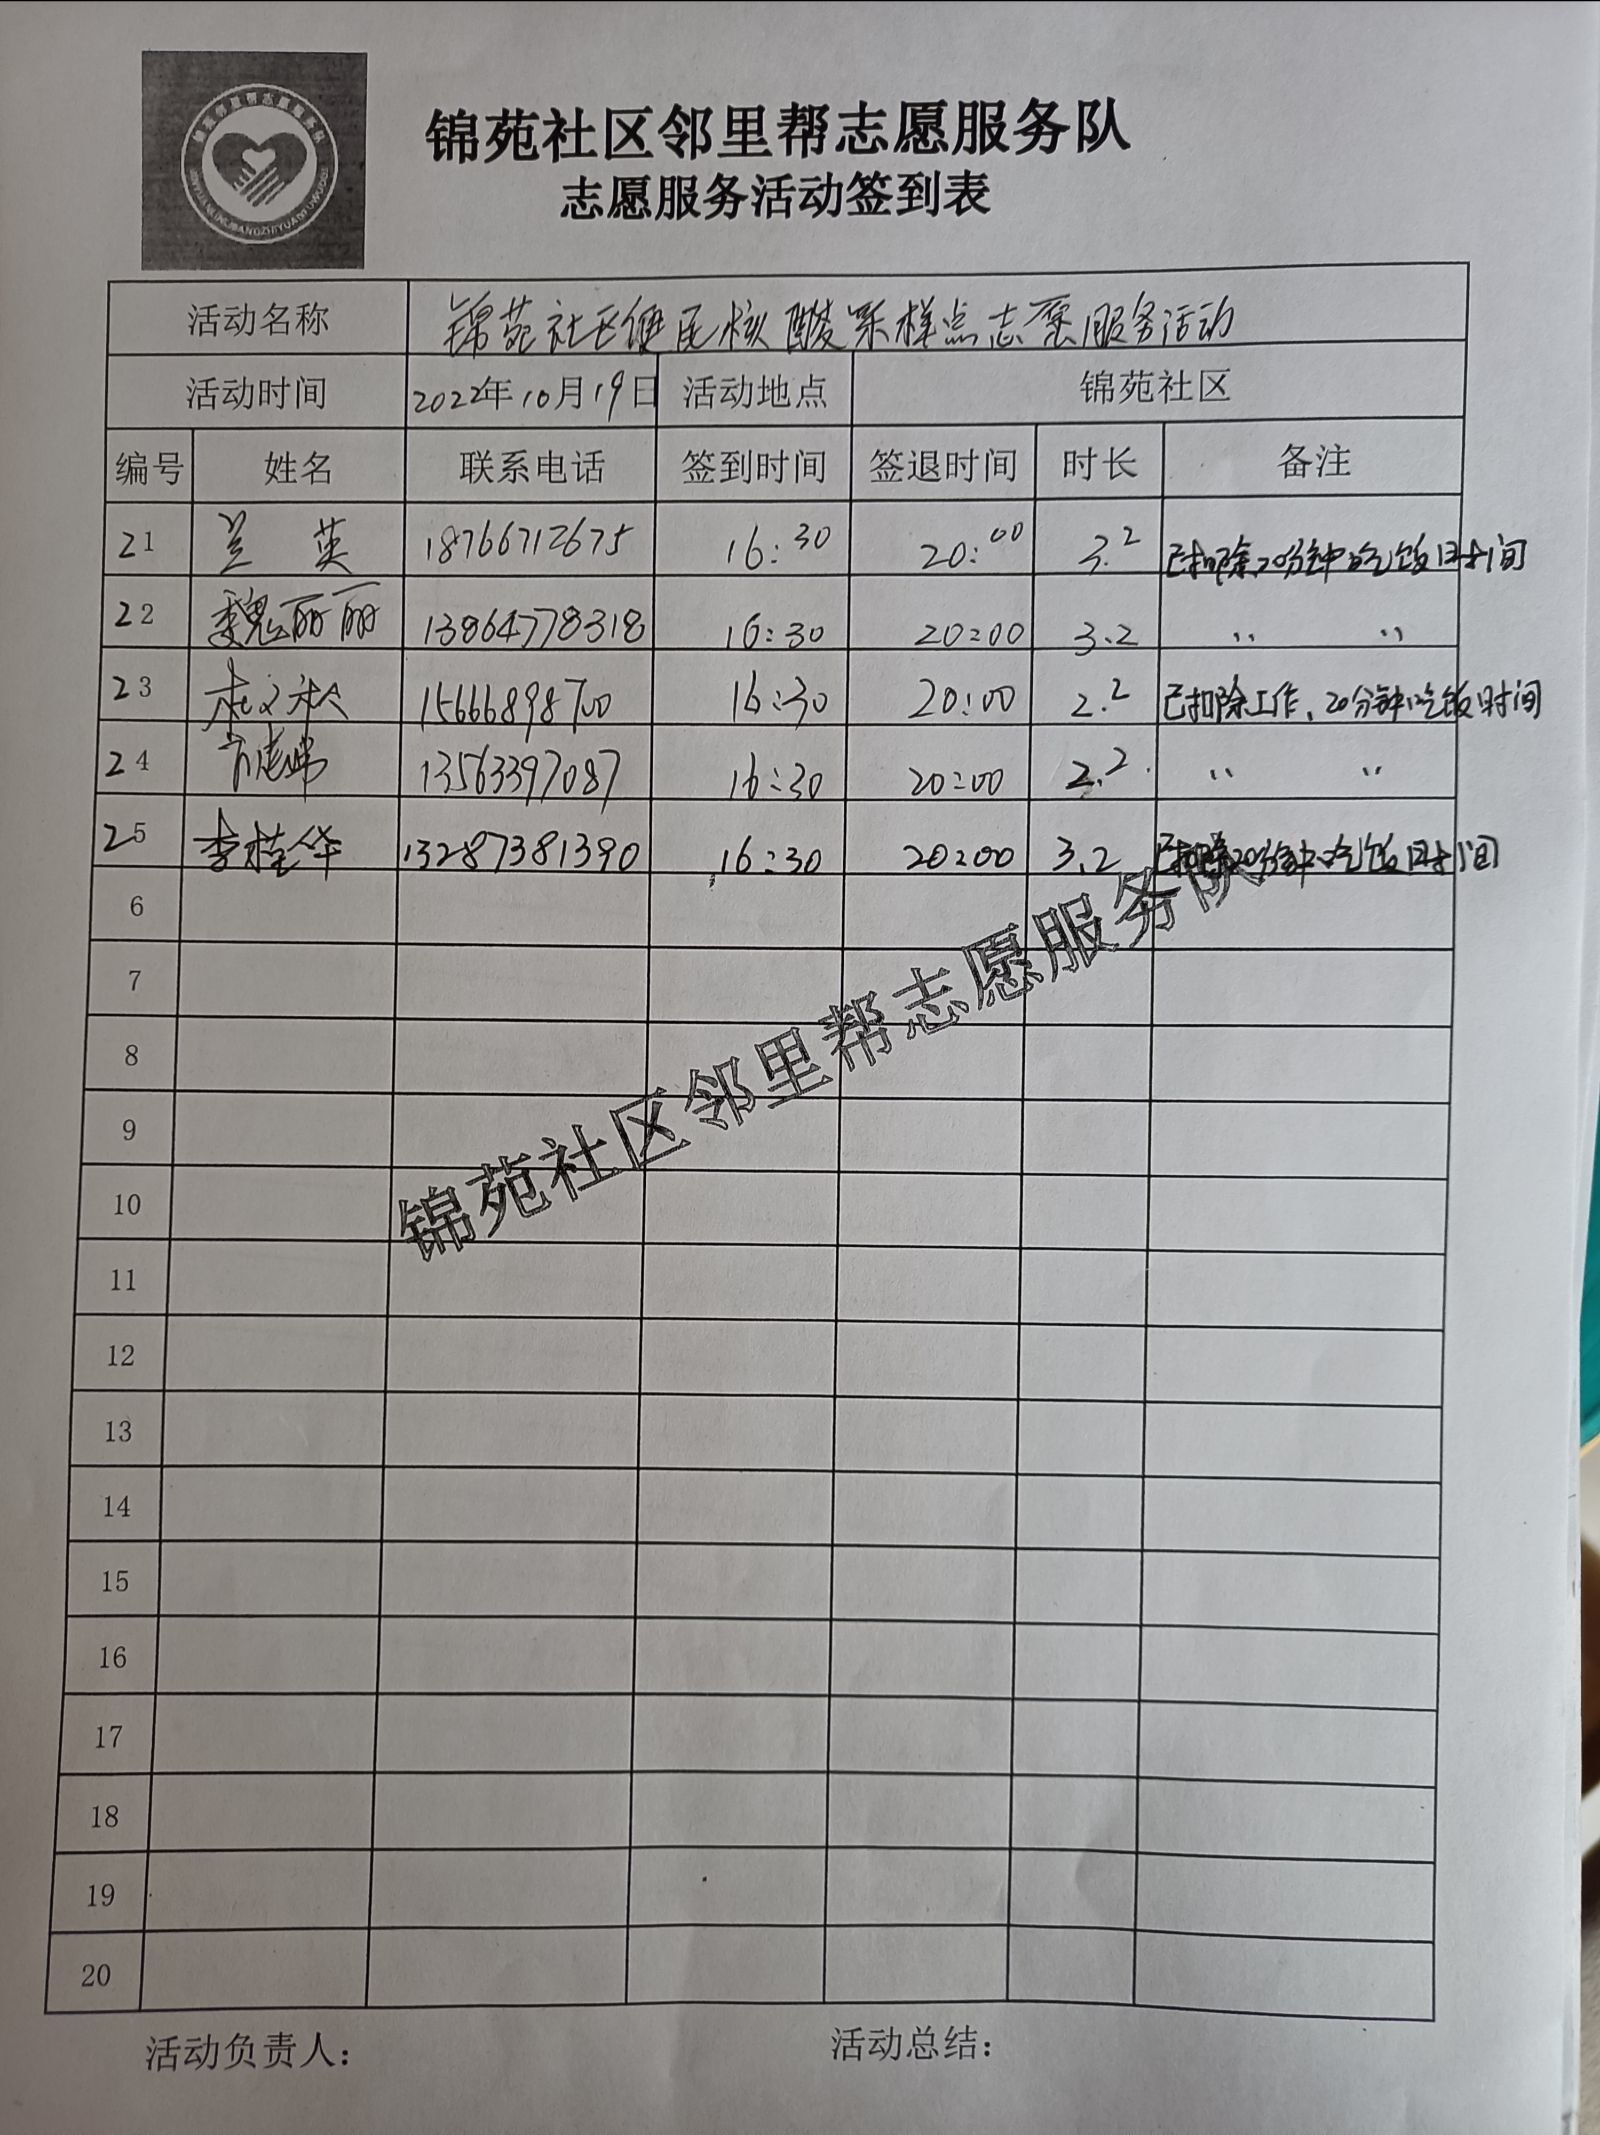 锦苑社区邻里帮志愿服务队
志愿服务活动签到表
活动名称 锦苑社区便民核酸采样点志愿服务活动
活动时间 2022年10月19日 活动地点 锦苑社区
编号 姓名 联系电话 签到时间 签退时间 时长 备注
21 兰英 18766712675 16:30 20:00 3.2 已扣除20分钟吃饭时间
22 魏丽丽 13864778318 16:30 20:00 3.2 〃 〃
23 杜文秋 15666898700 16:30 20:00 2.2 已扣除工作、20分钟吃饭时间
24 13563397087 16:30 20:00 2.2 〃 〃
25 李桂华 13287381390 16:30 20:00 3.2 已扣除20分钟吃饭时间
6
7
8
9
10
11
12
13
14
15
16
17
18
19
20
锦苑社区邻里帮志愿服务队
活动负责人: 活动总结: